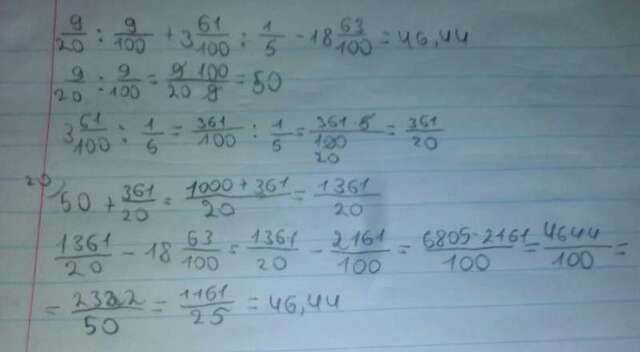 9/20 : 9/100 + 3 61/100 : 1/5 - 18 63/100 = 46,44
9/20 : 9/100 = 9·100/20 9 = 50
3 61/100 : 1/5 = 361/100 : 1/5 = 361·5/100 20 = 361/20
20) 50 + 361/20 = 1000+361/20 = 1361/20
1361/20 - 18 63/100 = 1361/20 - 2161/100 = 6805-2161/100 = 4644/100 =
= 2322/50 = 1161/25 = 46,44